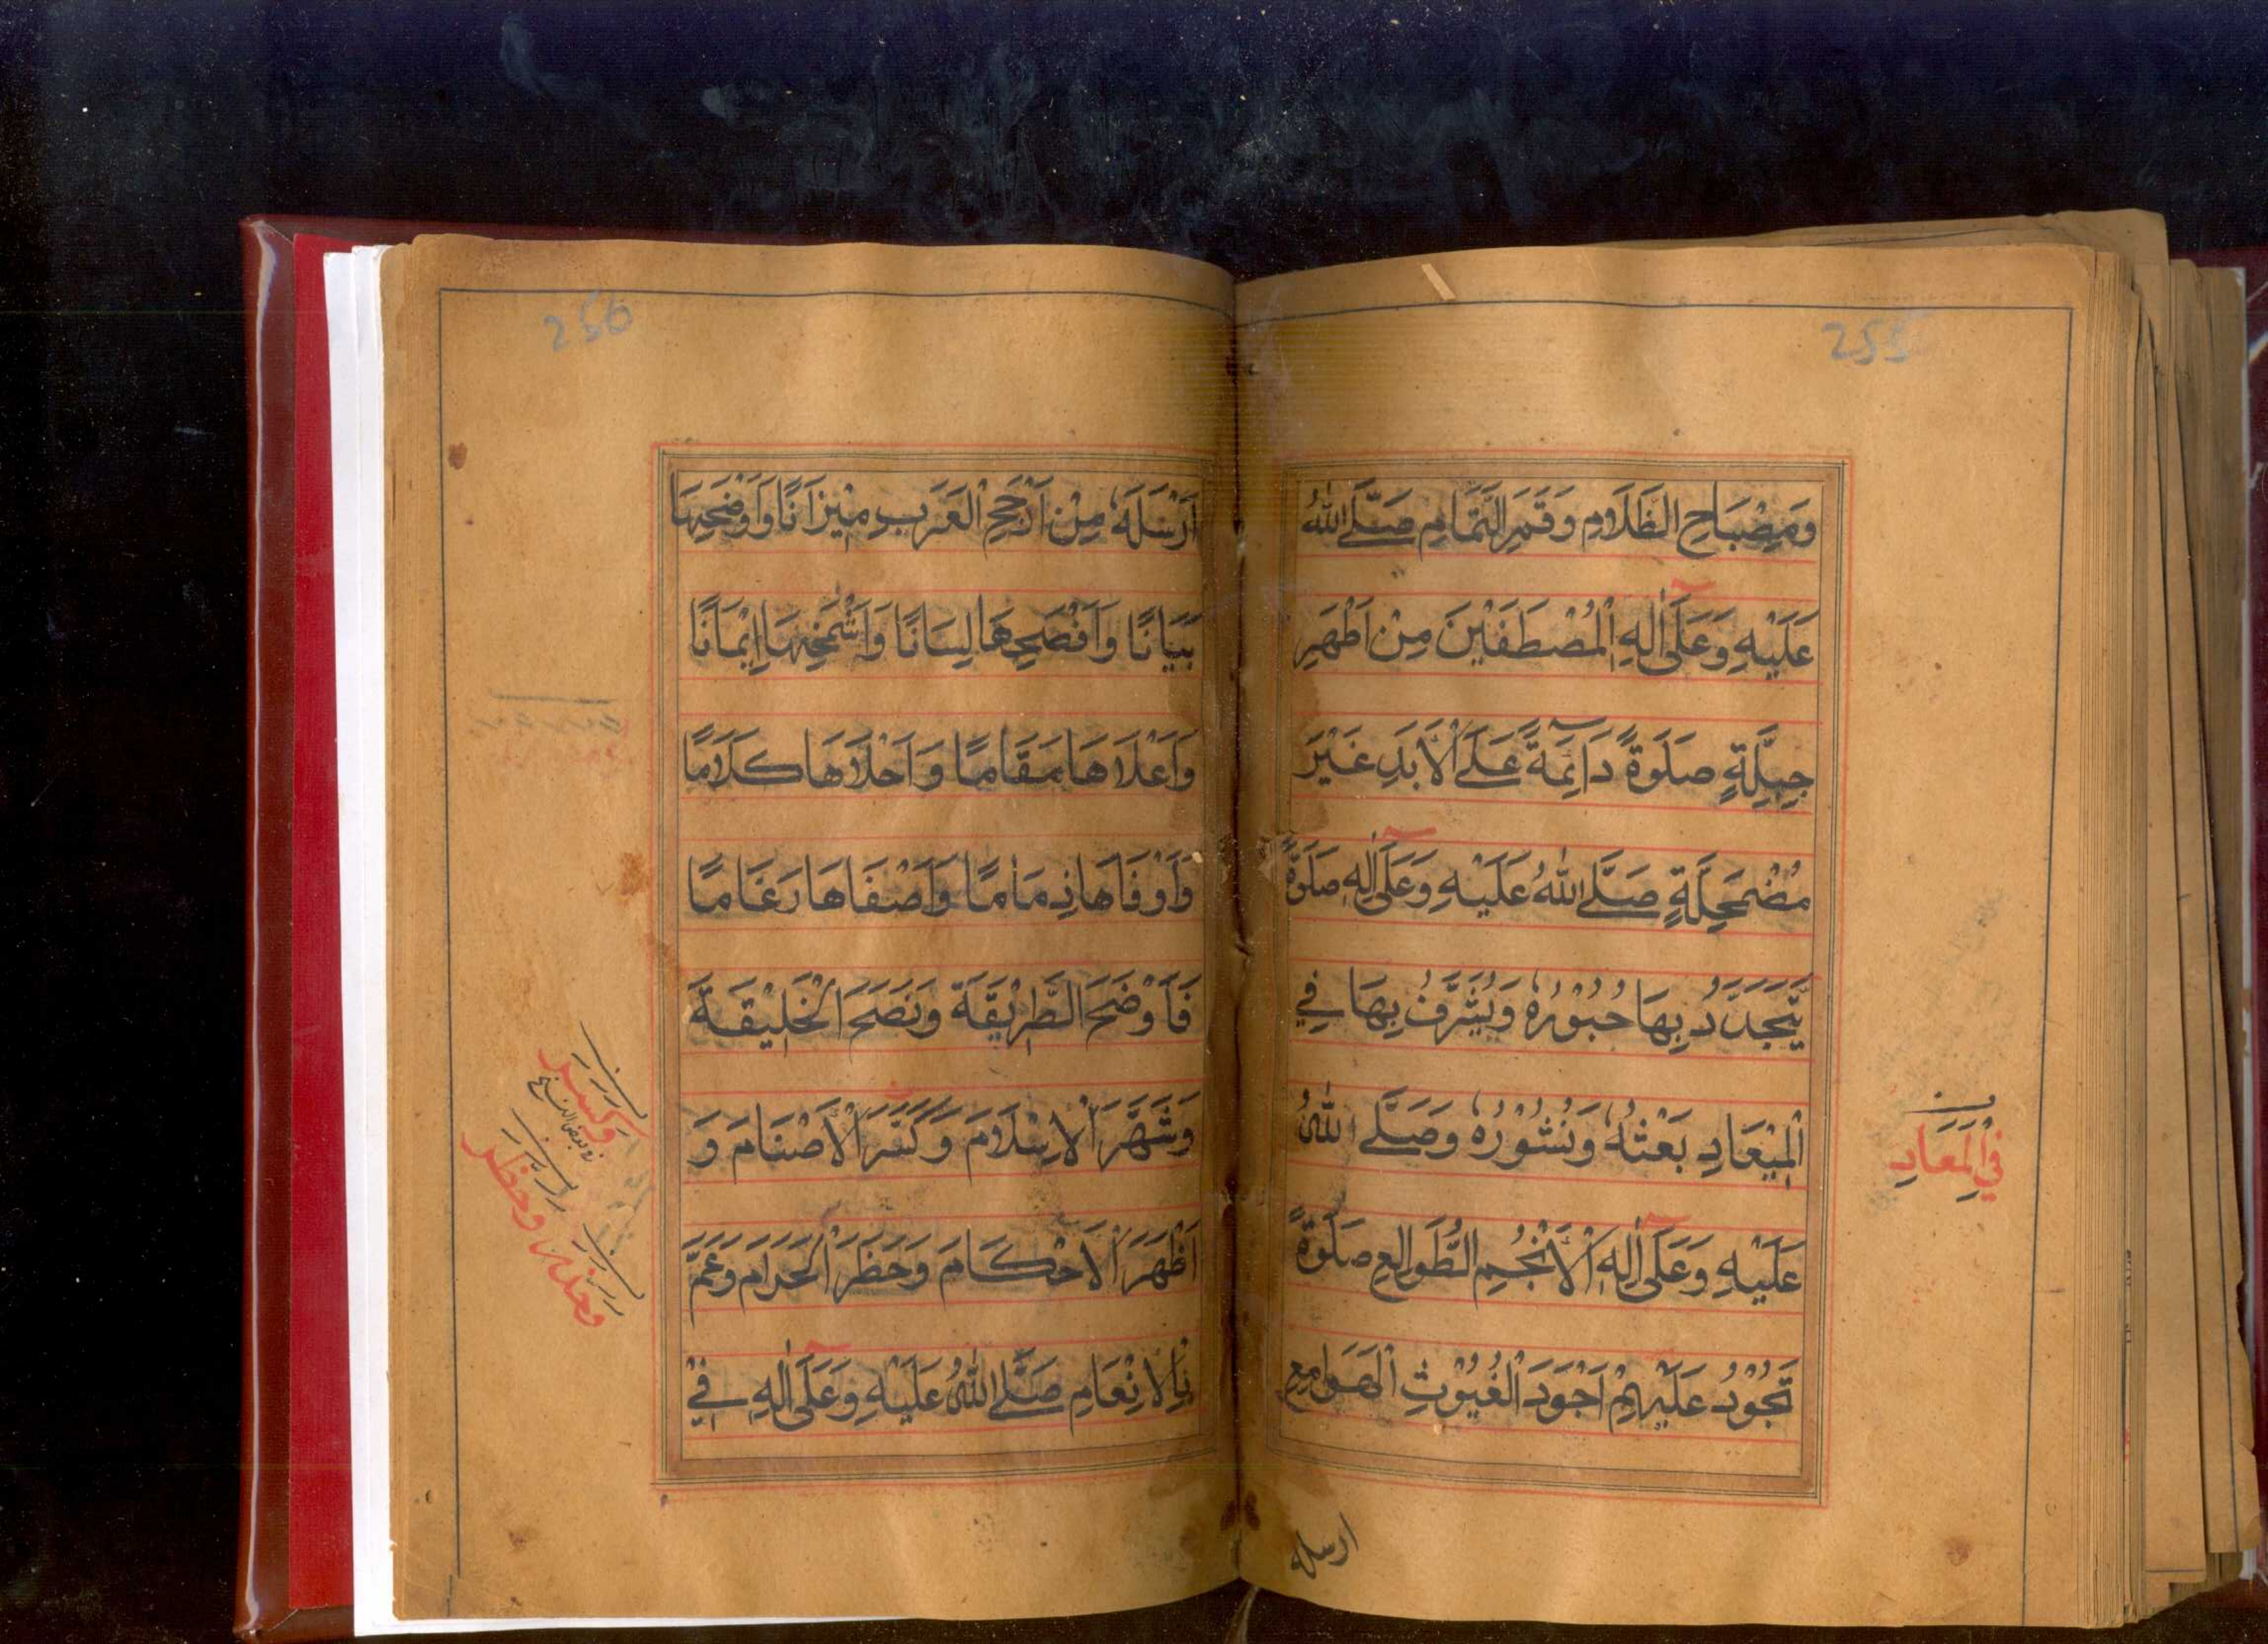 255
وَمِصْبَاحِ الظَّلَامِ وَقَمَرِ التَّمَامِ صَلَّى اللّٰهُ
عَلَيْهِ وَعَلٰٓى اٰلِهِ الْمُصْطَفَيْنَ مِنْ اَطْهَرِ
جِبِلَّةٍ صَلٰوةً دَآئِمَةً عَلَى الْاَبَدِ غَيْرَ
مُضْمَحِلَّةٍ صَلَّى اللّٰهُ عَلَيْهِ وَعَلٰٓى اٰلِهِ صَلٰوةً
يَّتَجَدَّدُ بِهَا حُبُوْرُهٗ وَيُشَرَّفُ بِهَا فِي
الْمِيْعَادِ بَعْثُهٗ وَنُشُوْرُهٗ وَصَلَّى اللّٰهُ
عَلَيْهِ وَعَلٰٓى اٰلِهِ الْاَنْجُمِ الطَّوَالِعِ صَلٰوةً
تَجُوْدُ عَلَيْهِمْ اَجْوَدَ الْغُيُوْثِ الْهَوَامِعِ
فِي الْمَعَادِ
ارسله
256
اَرْسَلَهٗ مِنْ اَرْجَحِ الْعَرَبِ مِيْزَانًا وَاَوْضَحِهَا
بَيَانًا وَاَفْصَحِهَا لِسَانًا وَاَشْمَخِهَا اِيْمَانًا
وَاَعْلَاهَا مَقَامًا وَاَحْلَاهَا كَلَامًا
وَاَوْفَاهَا ذِمَامًا وَاَصْفَاهَا رَغَامًا
فَاَوْضَحَ الطَّرِيْقَةَ وَنَصَحَ الْخَلِيْقَةَ
وَشَهَّرَ الْاِسْلَامَ وَكَسَّرَ الْاَصْنَامَ وَ
اَظْهَرَ الْاَحْكَامَ وَحَظَرَ الْحَرَامَ وَعَمَّ
بِالْاِنْعَامِ صَلَّى اللّٰهُ عَلَيْهِ وَعَلٰٓى اٰلِهِ فِيْ
وَكَسَرَ
وحظر